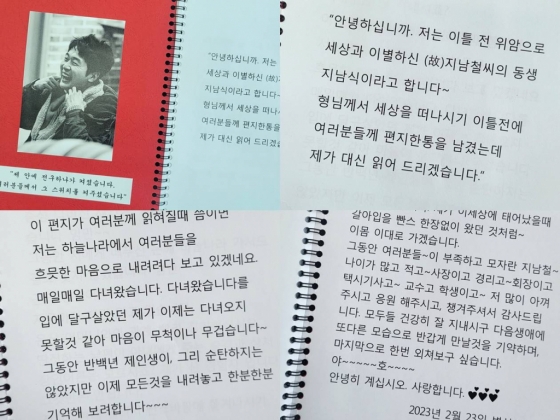 "내 안에 전구하나가 켜졌습니다.
여러분들께서 그 스위치를 켜주셨습니다"
"안녕하십니까. 저는
세상과 이별하신 (故)
지남식이라고 합니다~
형님께서 세상을 떠나시
여러분들께 편지한통을
제가 대신 읽어 드리겠습
"안녕하십니까. 저는 이틀 전 위암으로
세상과 이별하신 (故)지남철씨의 동생
지남식이라고 합니다~
형님께서 세상을 떠나시기 이틀전에
여러분들께 편지한통을 남겼는데
제가 대신 읽어 드리겠습니다."
이 편지가 여러분께 읽혀질때 쯤이면
저는 하늘나라에서 여러분들을
흐믓한 마음으로 내려려다 보고 있겠네요.
매일매일 다녀왔습니다. 다녀왔습니다를
입에 달구살았던 제가 이제는 다녀오지
못할것 같아 마음이 무척이나 무겁습니다~
그동안 반백년 제인생이, 그리 순탄하지는
않았지만 이제 모든것을 내려놓고 한분한분
기억해 보려합니다~~~
제가 이세상에 태어났을때
갈아입을 빤스 한장없이 왔던 것처럼~
이몸 이대로 가겠습니다.
그동안 여러분들~이 부족하고 모자란 지남철~
나이가 많고 적고~사장이고 경리고~회장이고
택시기사고~ 교수고 학생이고~ 저 많이 아껴
주시고 응원 해주시고, 챙겨주셔서 감사드립
니다. 모두들 건강히 잘 지내시구 다음생애에
또다른 모습으로 반갑게 만날것을 기약하며,
마지막으로 한번 외쳐보구 싶습니다.
야~~~~~호~~~~
안녕히 계십시오. 사랑합니다. ♥♥♥
2023년 2월 23일